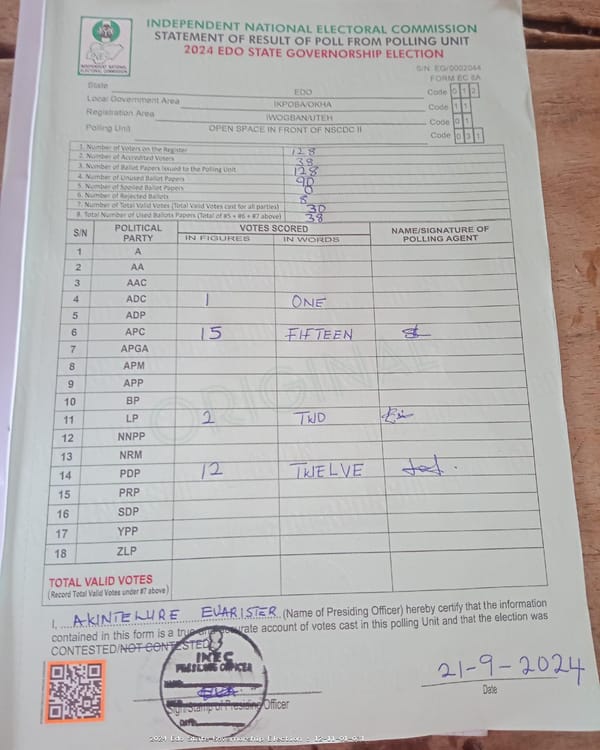 INDEPENDENT NATIONAL ELECTORAL COMMISSION
STATEMENT OF RESULT OF POLL FROM POLLING UNIT
2024 EDO STATE GOVERNORSHIP ELECTION
INDEPENDENT NATIONAL ELECTORAL COMMISSION
S/N: EG/0002044
FORM EC 8A
State EDO Code 0 1 2
Local Government Area IKPOBA/OKHA Code 1 1
Registration Area IWOGBAN/UTEH Code 0 1
Polling Unit OPEN SPACE IN FRONT OF NSCDC II Code 0 3 1
1. Number of Voters on the Register 128
2. Number of Accredited Voters 38
3. Number of Ballot Papers Issued to the Polling Unit 128
4. Number of Unused Ballot Papers 90
5. Number of Spoiled Ballot Papers 0
6. Number of Rejected Ballots 8
7. Number of Total Valid Votes (Total Valid Votes cast for all parties) 30
8. Total Number of Used Ballots Papers (Total of #5 + #6 + #7 above) 38
S/N POLITICAL PARTY VOTES SCORED NAME/SIGNATURE OF POLLING AGENT
IN FIGURES IN WORDS
1 A
2 AA
3 AAC
4 ADC 1 ONE
5 ADP
6 APC 15 FIFTEEN
7 APGA
8 APM
9 APP
10 BP
11 LP 2 TWO
12 NNPP
13 NRM
14 PDP 12 TWELVE
15 PRP
16 SDP
17 YPP
18 ZLP
ORIGINAL
TOTAL VALID VOTES
(Record Total Valid Votes under #7 above)
I, AKINTELURE EVARISTER (Name of Presiding Officer) hereby certify that the information
contained in this form is a true and accurate account of votes cast in this polling Unit and that the election was
CONTESTED/NOT CONTESTED.
INEC
PRESIDING OFFICER
NAME:
SIGN:
DATE:
Sign/Stamp of Presiding Officer
21-9-2024
Date
2024 Edo State Governorship Election - 12-11-01-031